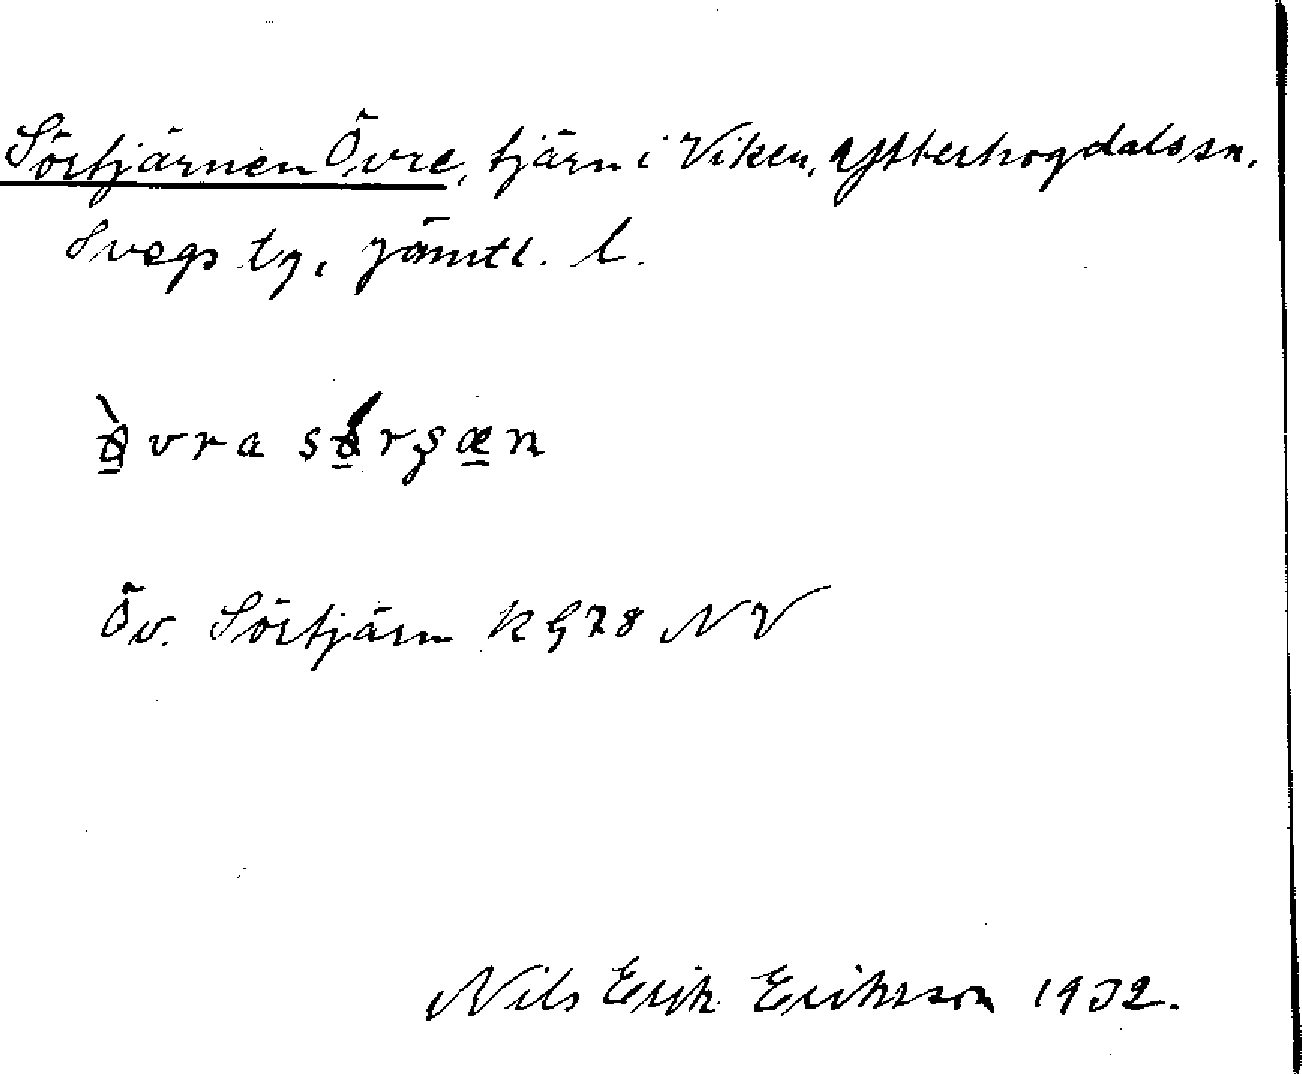 Sörtjärnen Övre, tjärn i Viken, Ytterhogdals sn.
Svegs tg, Jämtl. l.
Öv. Sörtjärn KG78 NV
Nils Erik Eriksson 1932.